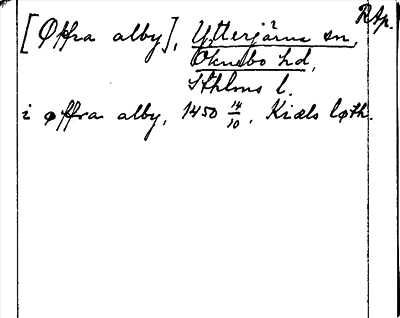 RAp.
[Øffra alby], Ytterjärna sn,
Öknebo hd,
Sthlms l.
i øffra alby, 1450 14/10. Kiæls løth.